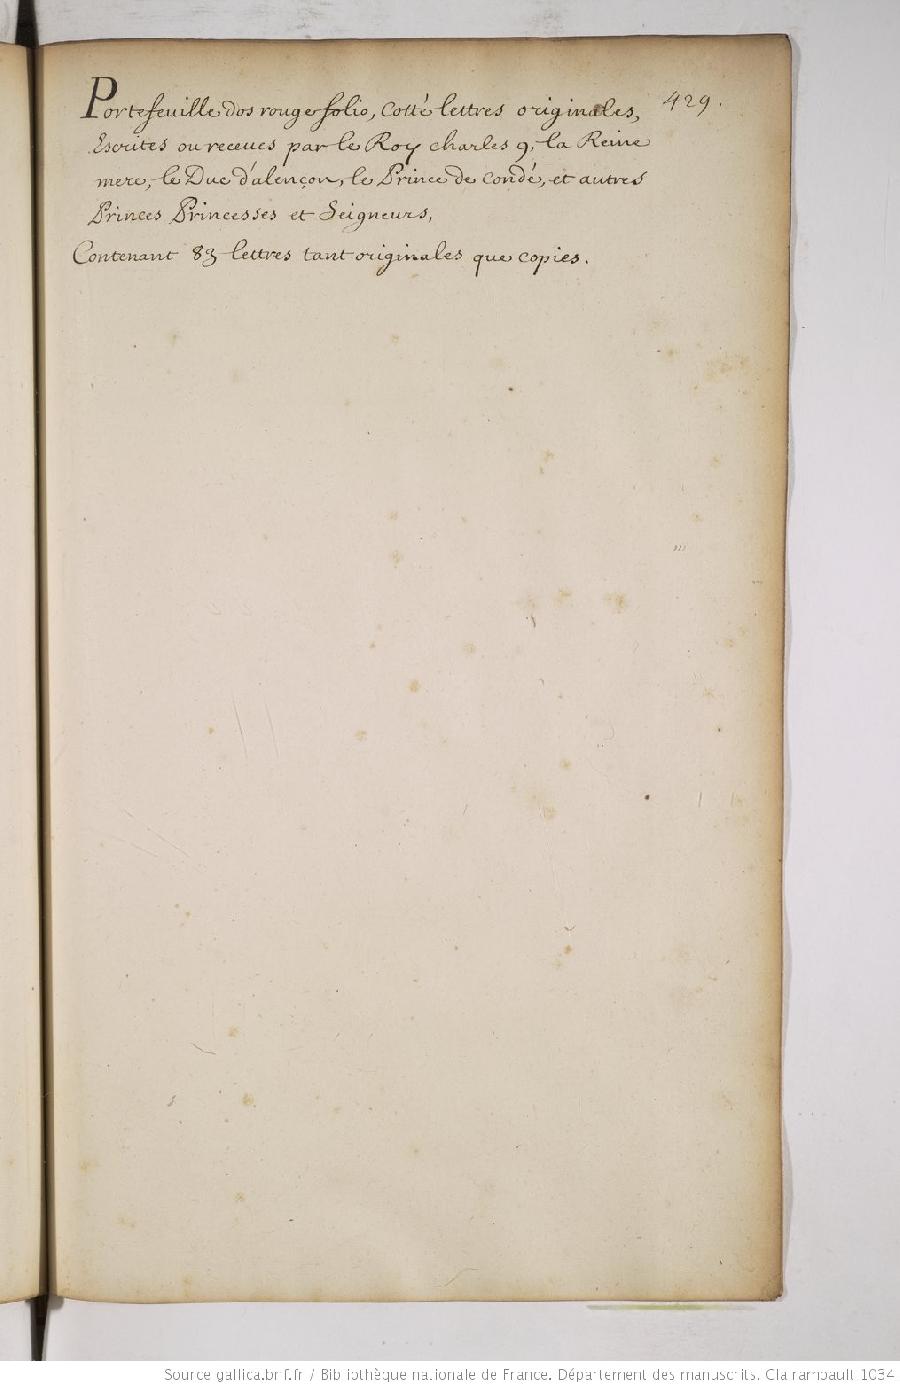 Portefeuille dos rouge folio, Cotté lettres originales, 429.
Escrites ou receues par le Roy charles 9, la Reine
mere, le Duc d'alençon, le Prince de Condé, et autres
Princes Princesses et Seigneurs,
Contenant 83 lettres tant originales que copies.
Source gallica.bnf.fr / Bibliothèque nationale de France. Département des manuscrits. Clairambault 1034